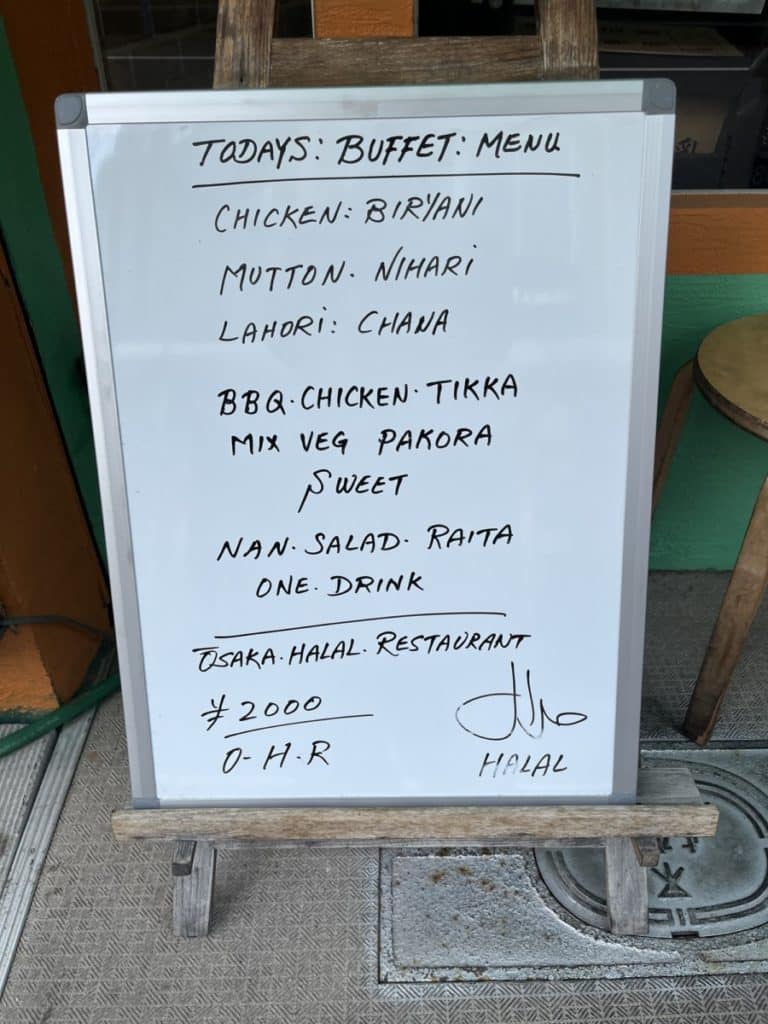 TODAYS: BUFFET: MENU
CHICKEN: BIRYANI
MUTTON. NIHARI
LAHORI: CHANA
BBQ. CHICKEN. TIKKA
MIX VEG PAKORA
SWEET
NAN. SALAD. RAITA
ONE. DRINK
OSAKA. HALAL. RESTAURANT
¥2000
O-H.R
حلال
HALAL